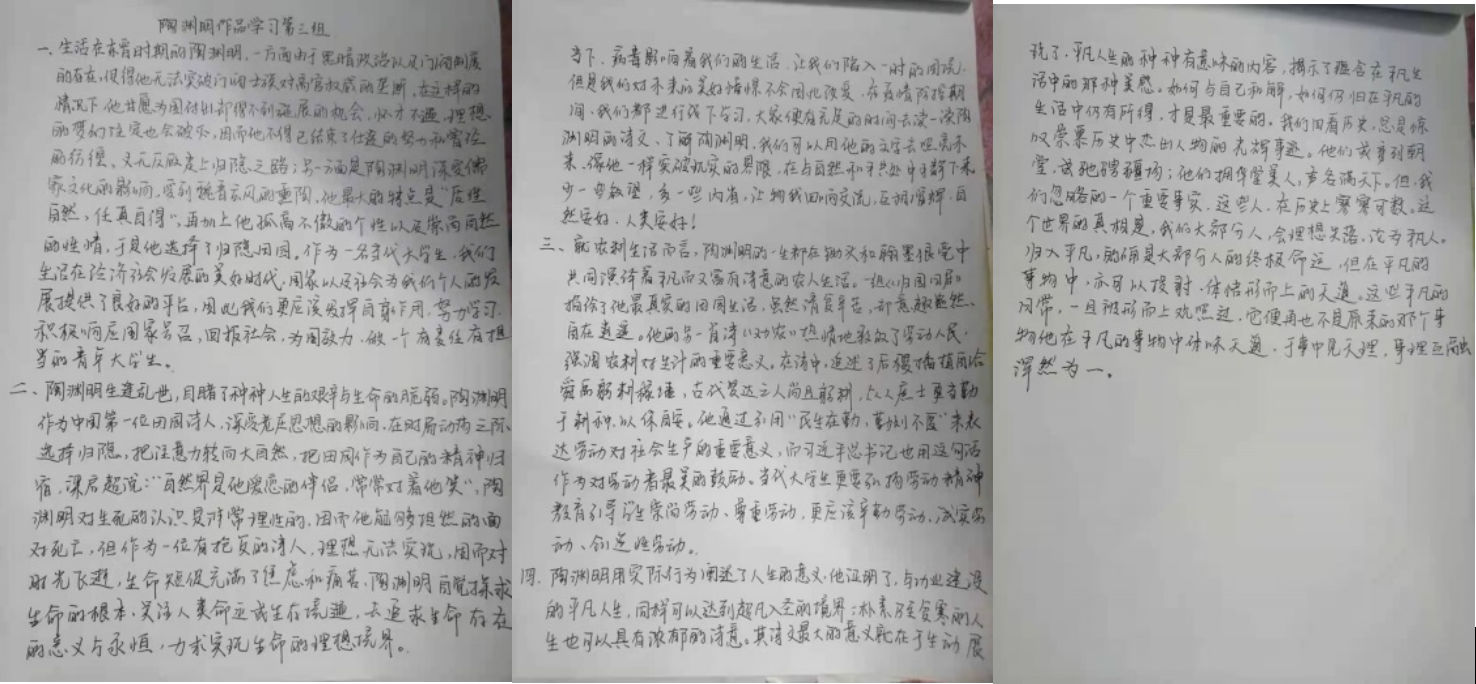 陶渊明作品学习第三组
一、生活在东晋时期的陶渊明，一方面由于黑暗政治以及门阀制度
的存在，使得他无法突破门阀士族对高官权威的垄断，在这样的
情况下，他甘愿为国付出却得不到施展的机会，怀才不遇，理想
的梦幻注定也会破灭，因而他不得已结束了仕途的努力和曾经
的彷徨，义无反顾走上归隐之路；另一方面是陶渊明深受儒
家文化的影响，受到魏晋玄风的熏陶，他最大的特点是“
自然，任真自得”，再加上他孤高不傲的个性以及崇尚自然
的性情，于是他选择了归隐田园。作为一名当代大学生，我们
生活在经济社会发展的美好时代，国家以及社会为我们个人的发
展提供了良好的平台，因此我们更应该发挥自身作用，努力学习，
积极响应国家号召，回报社会，为国效力，做一个有责任有担
当的青年大学生。
二、陶渊明生逢乱世，目睹了种种人生的艰辛与生命的脆弱。陶渊明
作为中国第一位田园诗人，深受老庄思想的影响，在时局动荡之际，
选择归隐，把注意力转向大自然，把田园作为自己的精神归
宿，梁启超说：“自然界是他爱恋的伴侣，常常对着他笑”，陶
渊明对生死的认识是非常理性的，因而他能够坦然的面
对死亡，但作为一位有抱负的诗人，理想无法实现，因而对
时光飞逝，生命短促充满了焦虑和痛苦，陶渊明自觉探求
生命的根本，关注人类命运或生存境遇，去追求生命存在
的意义与永恒，力求实现生命的理想境界。
当下，病毒影响着我们的生活，让我们陷入一时的困境，
但是我们对未来的美好憧憬不会因此改变，在疫情防控期
间，我们都进行线下学习，大家便有充足的时间去读一读陶
渊明的诗文，了解陶渊明，我们可以用他的文字去照亮未
来，像他一样突破现实的界限，在与自然和 中
少一些欲望，多一些内省，让物我田间交流，互相增辉，自
然安好，人类安好！
三、就农耕生活而言，陶渊明的一生都在锄头和翰墨 中
共同演译着平凡而又富有诗意的农人生活。一组《归园田居》
描绘了他最真实的田园生活，虽然清贫辛苦，却意趣盎然、
自在逍遥。他的另一首诗《劝农》热情地歌颂了劳动人民，
强调农耕对生计的重要意义。在诗中，追述了后稷播植
舜禹躬耕稼穑，古代贤达之人尚且躬耕，众人庶士更当勤
于耕种，以保 。他通过引用“民生在勤，勤则不匮”来表
达劳动对社会生产的重要意义，而习近平总书记也用这句话
作为对劳动者最美的鼓励。当代大学生更要弘扬劳动精神
教育引导学生崇尚劳动、尊重劳动，更应该辛勤劳动、诚实劳
动、创造性劳动。
四、陶渊明用实际行为阐述了人生的意义，他证明了，与功业建设
的平凡人生，同样可以达到超凡入圣的境界；朴素乃至贫寒的人
生也可以具有浓郁的诗意。其诗文最大的意义就在于生动展
现了，平凡人生的种种有意味的内容，揭示了蕴含在平凡生
活中的那种美感。如何与自己和解，如何归在平凡的
生活中仍有所得，才是最重要的。我们回看历史，总是惊
叹荣景历史中杰出人物的光辉事迹。他们或 到朝
堂，或驰骋疆场；他们拥华堂美人，声名满天下。但，我
们忽略的一个重要事实，这些人，在历史上寥寥可数。这
个世界的真相是，我们大部分人，会理想失落，沦为凡人。
归入平凡，的确是大部分人的终极命运，但在平凡的
事物中，亦可以投射、体悟形而上的天道。这些平凡的
日常，一旦被形而上观照过，它便再也不是原来的那个事
物他在平凡的事物中体味天道，于事中见天理，事理
浑然为一。